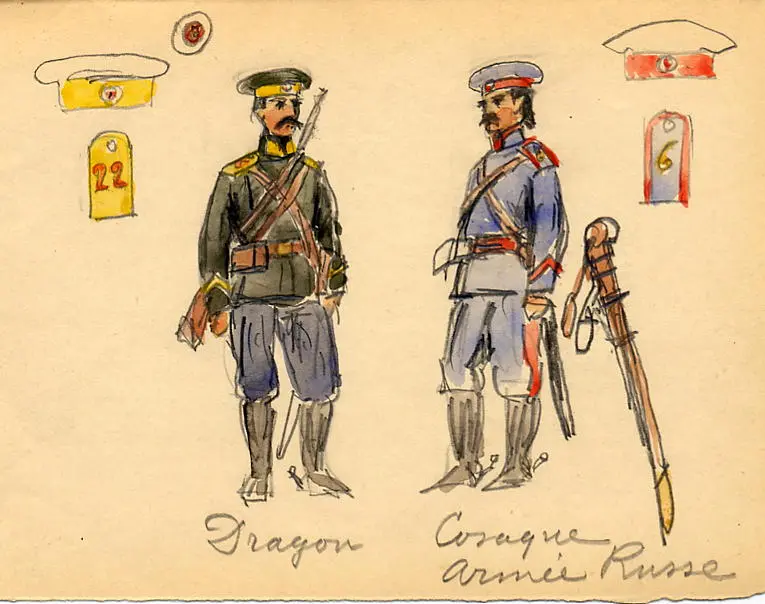 22
6
Dragon
Cosaque
Armée Russe